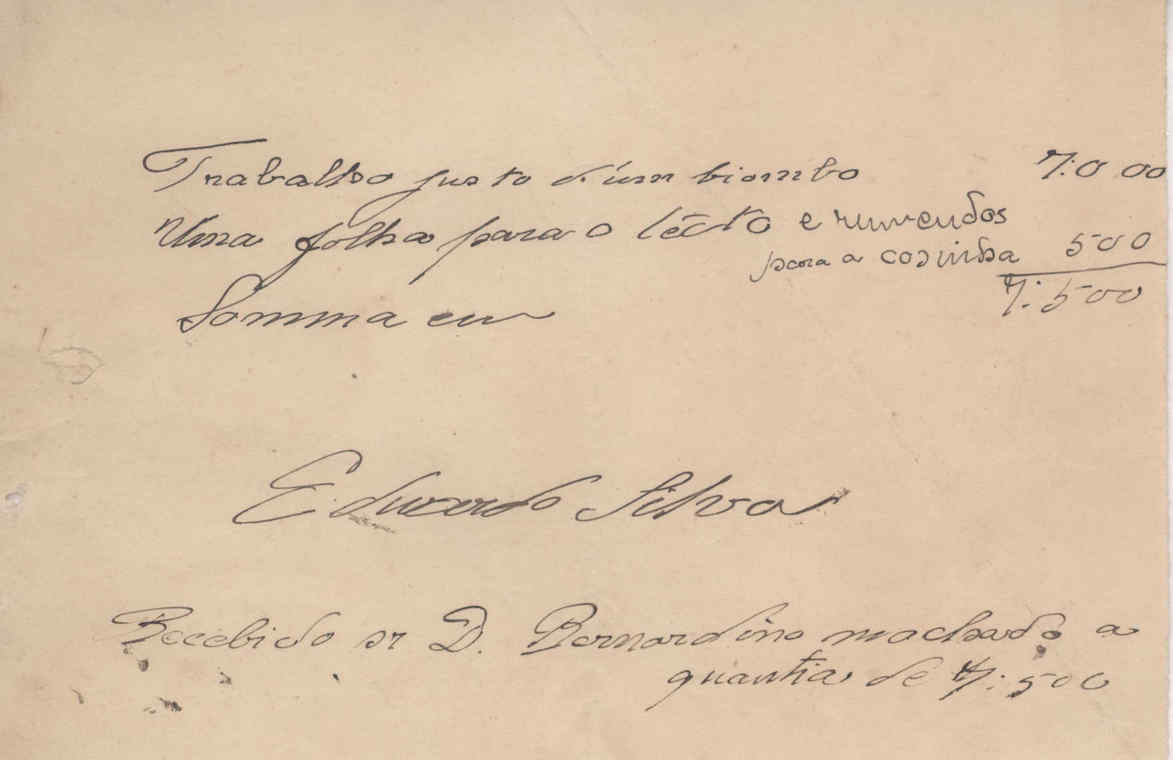 Trabalho justo d'um biombo 7:000
Uma folha para o técto e rumendos
para a cosinha 500
7:500
Somma em
Eduardo Silva
Recebido sr D. Bernardino machado a
quantia de 7:500